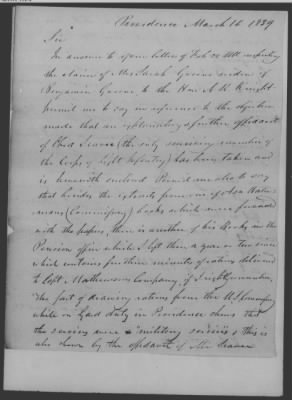 Providence March 12 1839
Sir
In answer to your letter of Feb 28 Ult respecting
the claim of Mrs Sarah Greene widow of
Benjamin Greene to the Hon N R Knight
permit me to say in reference to the objection
made that an explanatory & further affidavit
of (the only surviving member of
the Corps of Light Infantry) has been taken and
is herewith enclosed Permit me also to say
that besides the extracts from one of Asa Water-
mans (Commissary) books which were forwarded
with the papers, there is another of his Books in the
Pension office which I left there a year or two since
which contains further minutes of rations delivered
to Capt Mathewsons Company, if I rightly remember,
The fact of drawing rations from the U. S. Commissary
while on Guard duty in Providence shows that
the services were "military services" & this is
also shown by the affidavit of Mr